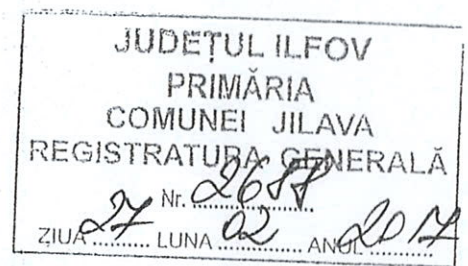 JUDEȚUL ILFOV
PRIMĂRIA
COMUNEI JILAVA
REGISTRATURA GENERALĂ
Nr. 2688
ZIUA 27 LUNA 02 ANUL 2017